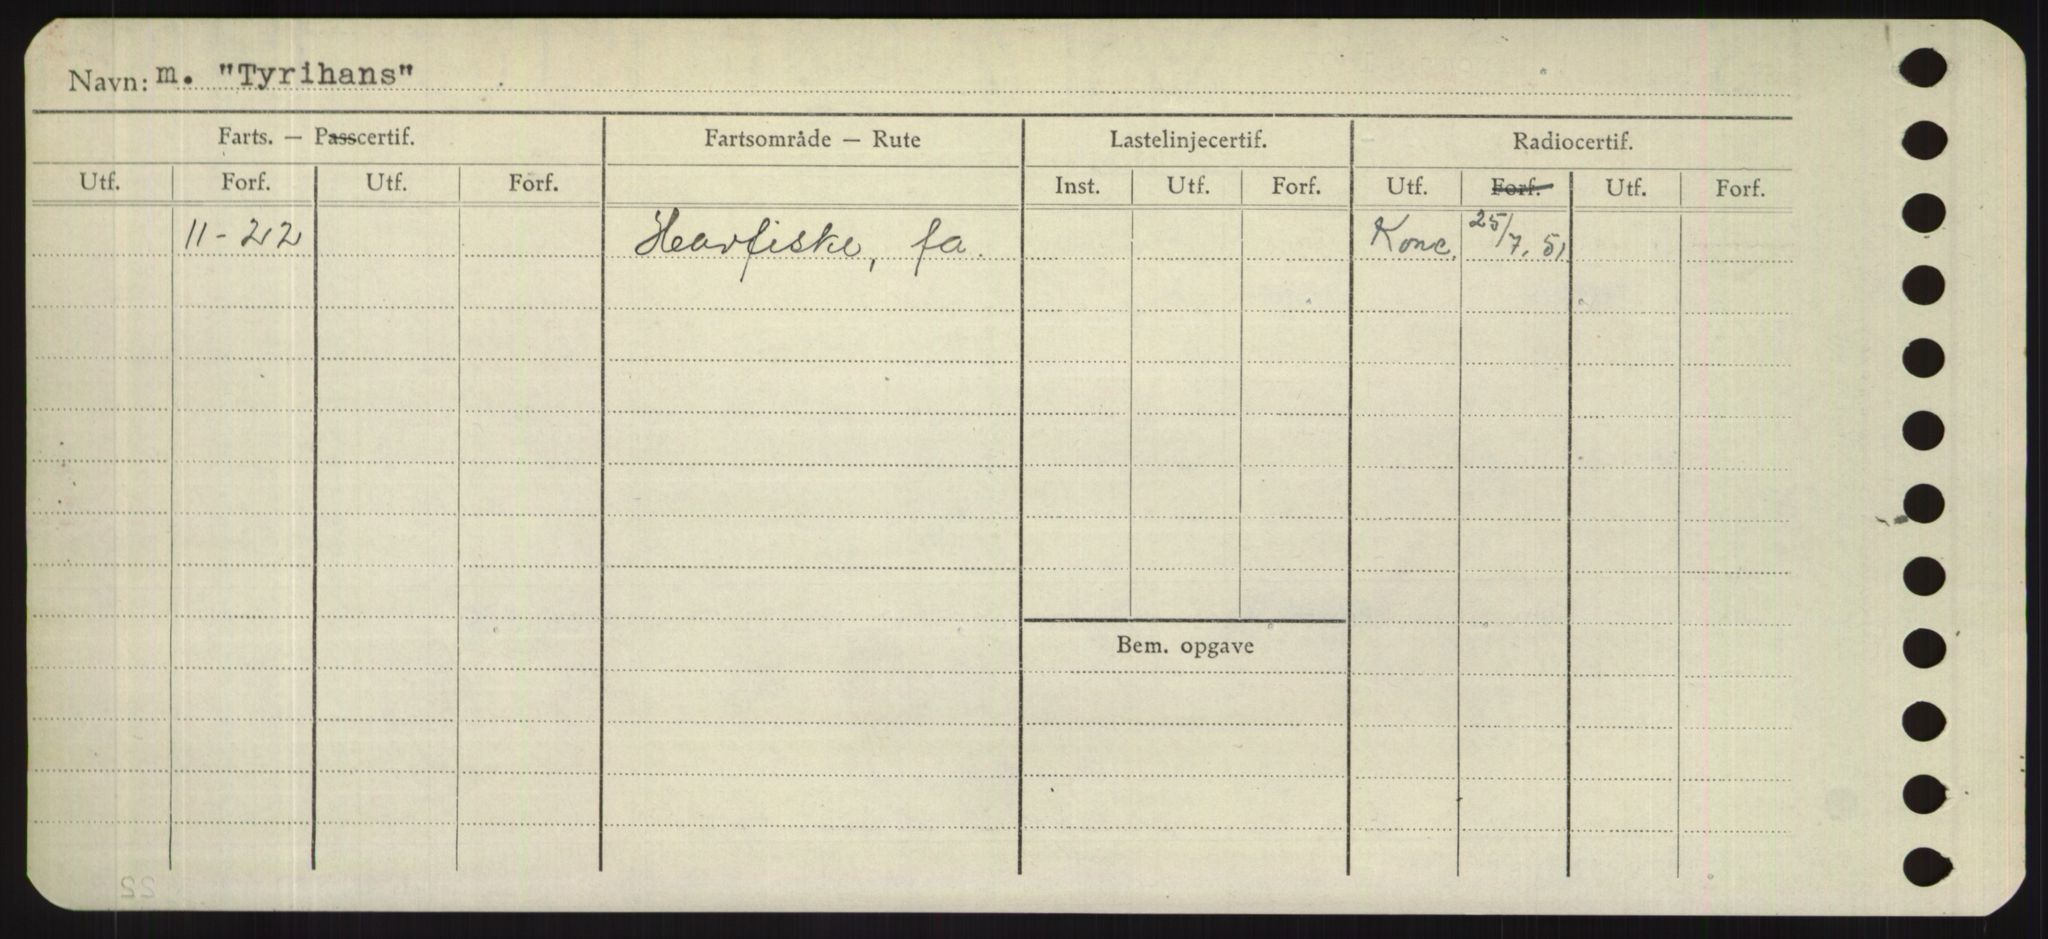 Navn: m. "Tyrihans"
Farts. — Passcertif. Fartsområde — Rute Lastelinjecertif. Radiocertif.
Utf. Forf. Utf. Forf. Inst. Utf. Forf. Utf. Forf. Utf. Forf.
11-22 Havfiske, fa. Konc. 25/7. 51
Bem. opgave
22